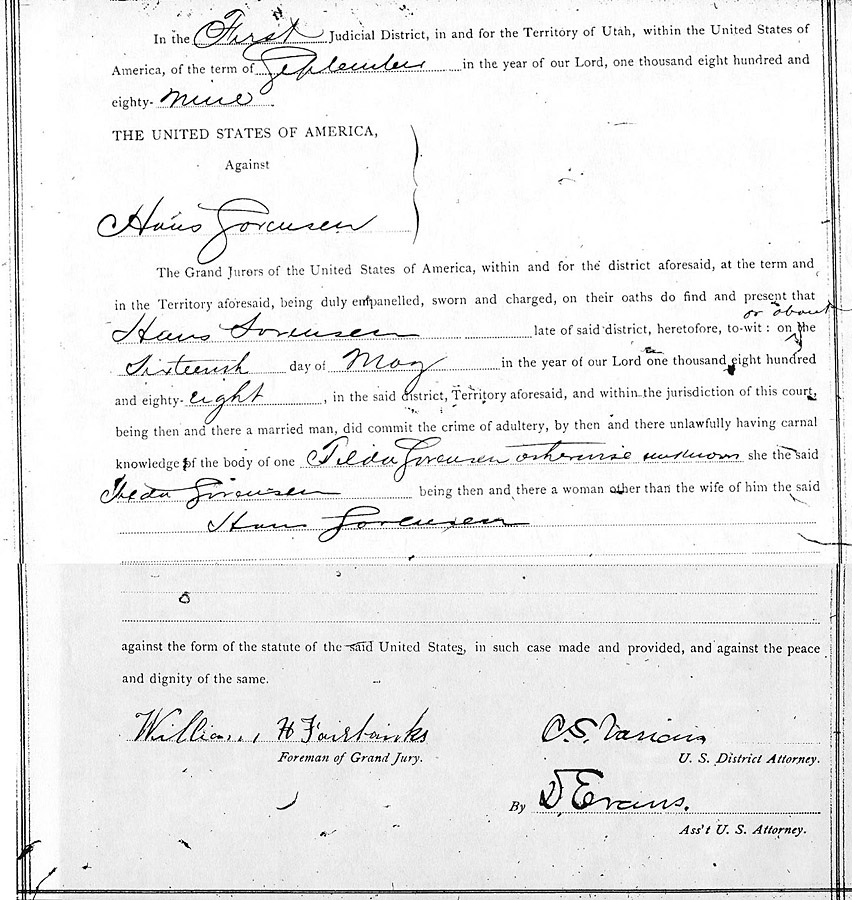 In the First Judicial District, in and for the Territory of Utah, within the United States of
America, of the term of September in the year of our Lord, one thousand eight hundred and
eighty- nine .
THE UNITED STATES OF AMERICA,
Against
Hans Sorensen
The Grand Jurors of the United States of America, within and for the district aforesaid, at the term and
in the Territory aforesaid, being duly empanelled, sworn and charged, on their oaths do find and present that
or about
Hans Sorensen late of said district, heretofore, to-wit : on the
Sixteenth day of May in the year of our Lord one thousand eight hundred
and eighty- eight , in the said district, Territory aforesaid, and within the jurisdiction of this court,
being then and there a married man, did commit the crime of adultery, by then and there unlawfully having carnal
knowledge of the body of one Tilda Sorensen otherwise unknown she the said
Tilda Sorensen being then and there a woman other than the wife of him the said
Hans Sorensen
against the form of the statute of the said United States, in such case made and provided, and against the peace
and dignity of the same.
William H Fairbanks C. S. Varian
Foreman of Grand Jury. U. S. District Attorney.
By D Evans.
Ass't U. S. Attorney.